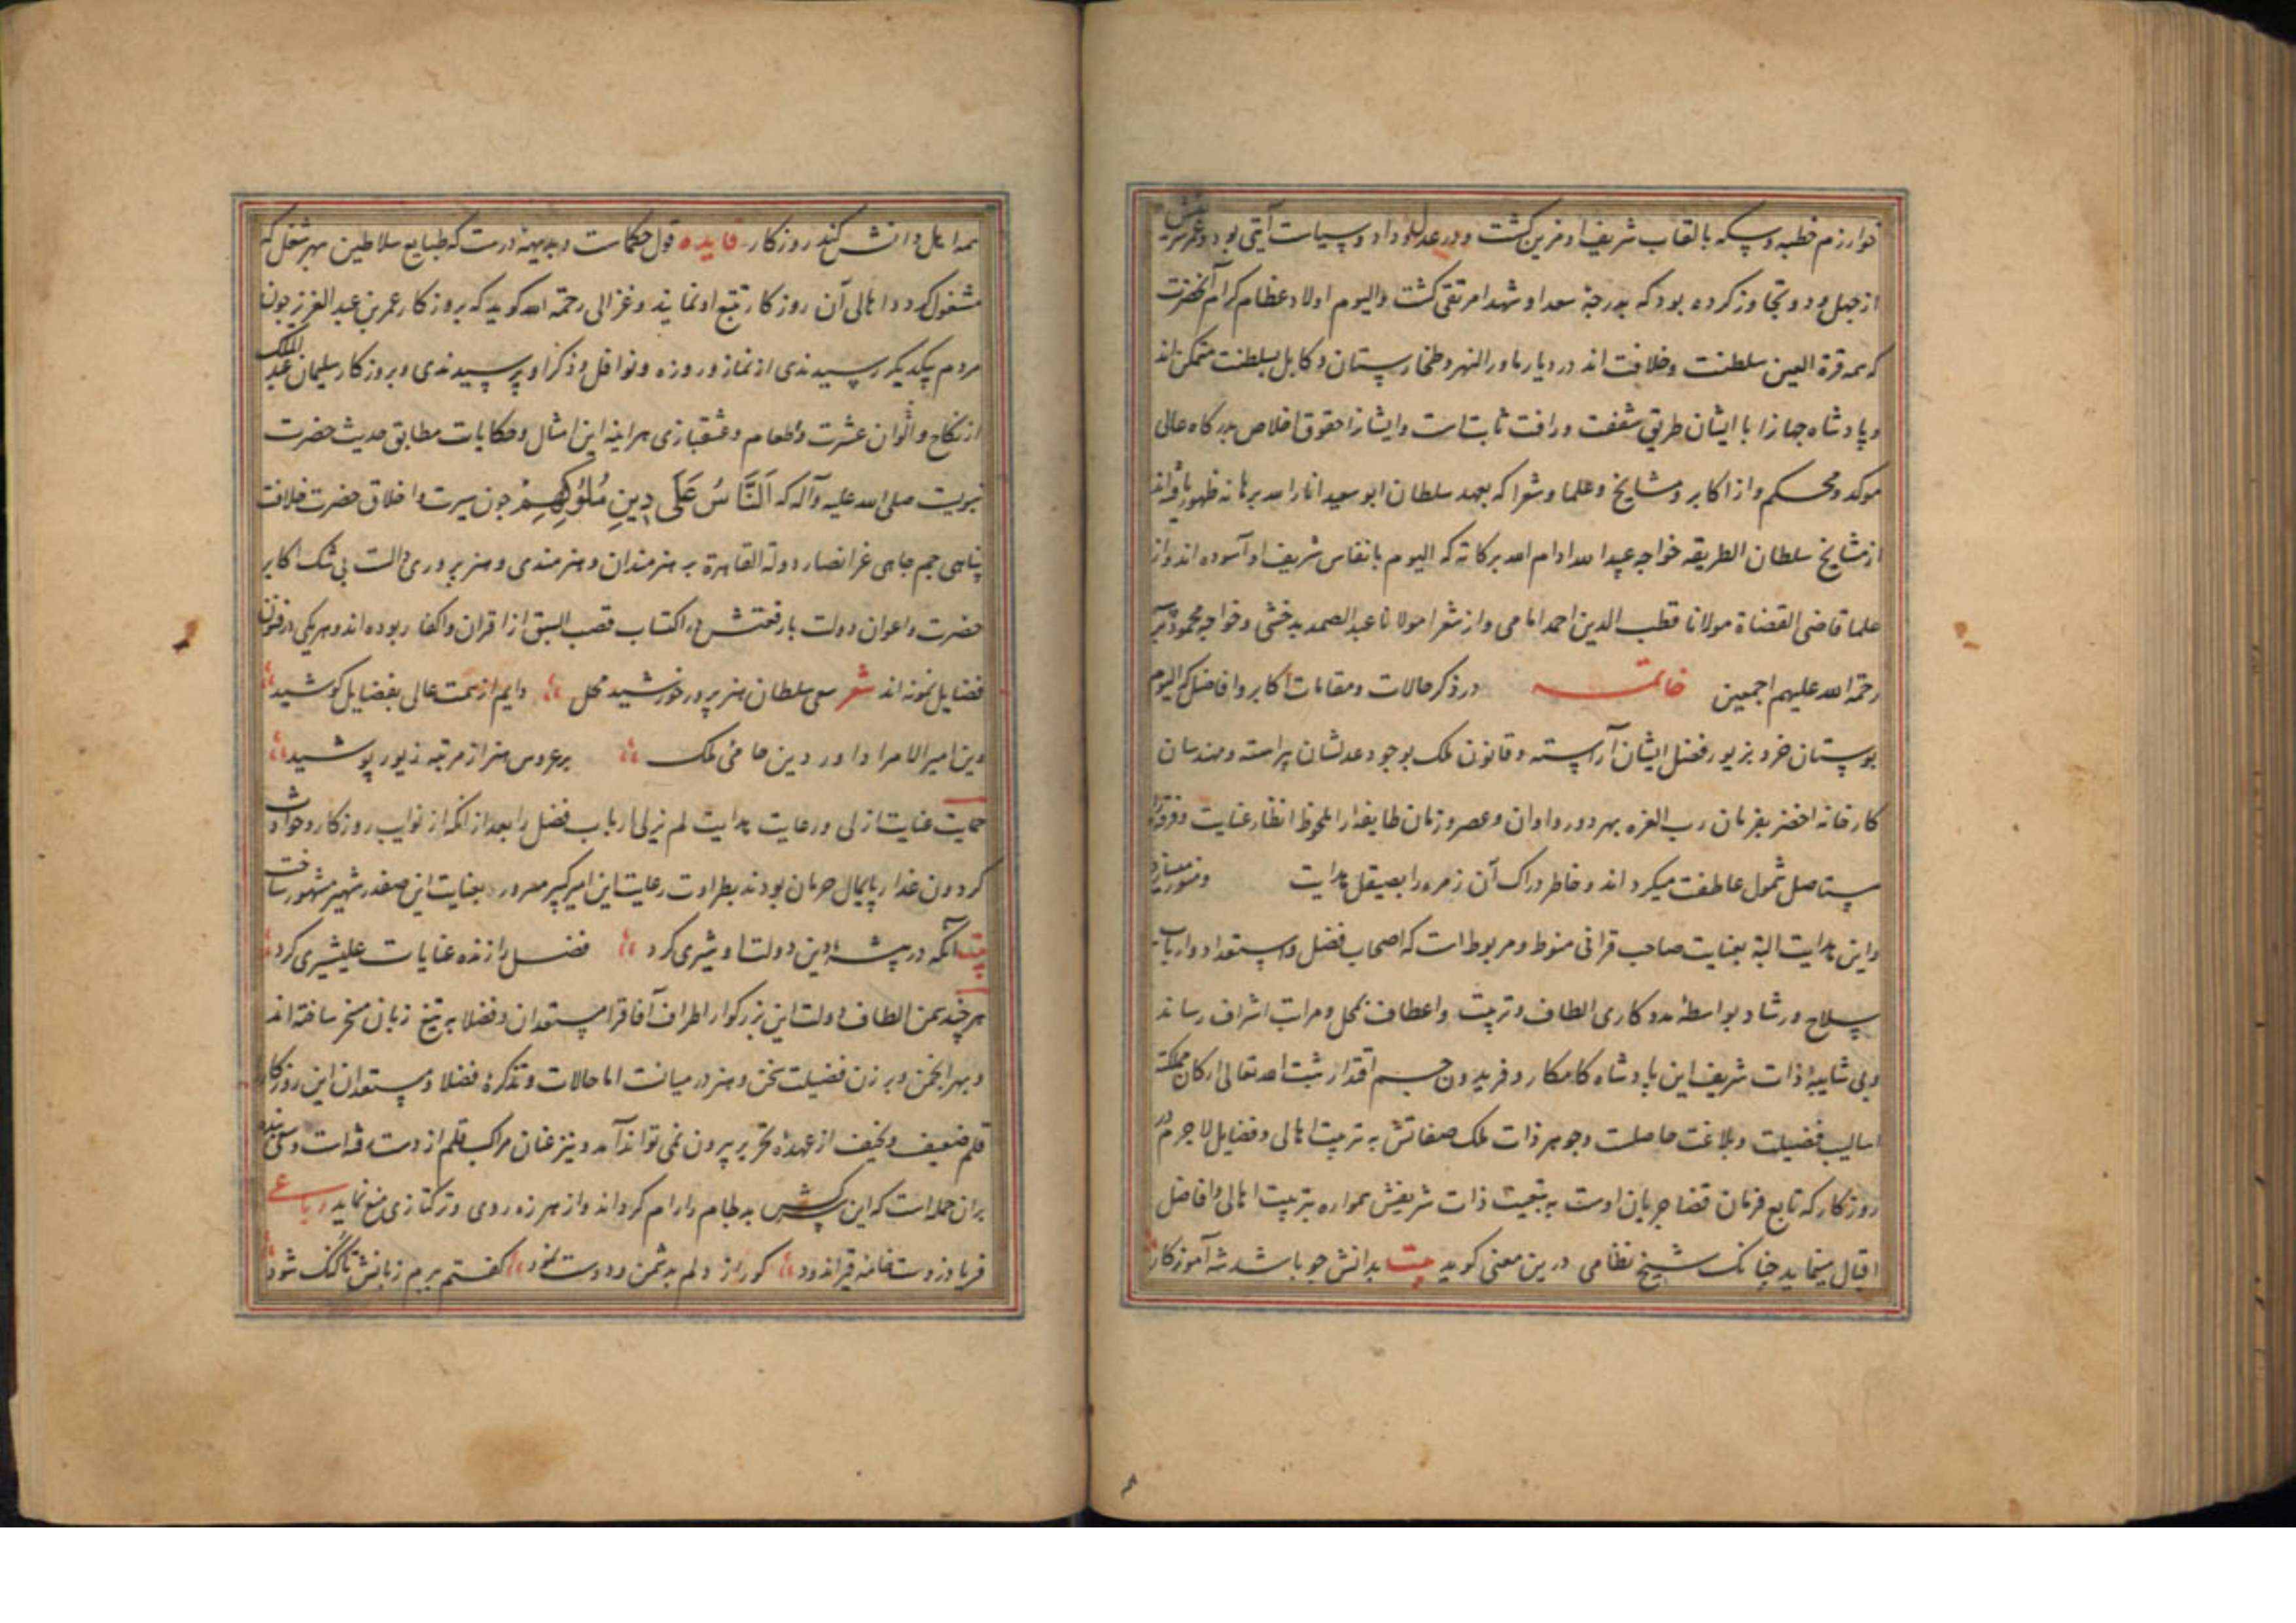 خوارزم خطبه و سکه بالقاب شریف او مزین گشت و در عدل و داد و سیاست آیتی بود و عمر شریفش
از چهل و دو تجاوز کرده بود که بدرجهٔ سعدا و شهدا مرتقی گشت والیوم اولاد عظام کرام آنحضرت
که همه قرة العین سلطنت و خلافت اند در دیار ماورالنهر و طخارستان و کابل بسلطنت متمکن اند
و پادشاه جهانرا با ایشان طریق شفقت و رافت ثابت است و ایشانرا حقوق اخلاص بدرکاه عالی
موکد و محکم و از اکابر و مشایخ و علما و شعرا که بعهد سلطان ابو سعید انار الله برهانه ظهور یافته اند
از مشایخ سلطان الطریقه خواجه عبید الله ادام الله برکاته که الیوم بانفاس شریف او آسوده اند و از
علما قاضی القضاة مولانا قطب الدین احمد امامی و از شعرا مولانا عبد الصمد بدخشی و خواجه محمود
رحمة الله علیهم اجمعین خاتمه در ذکر حالات و مقامات اکابر و افاضل که الیوم
بوستان خرد بزیور فضل ایشان آراسته و قانون ملک بوجود عدلشان پیراسته و مهندسان
کارخانه اخضر بفرمان رب العزه بهر دور و اوان و عصر و زمان طایفه را ملحوظ انظار عنایت و فرقه را
مستاصل شمول عاطفت میکرداند و خاطر دراک آن زمره را بصیقل هدایت و منور میسازد
و این هدایت البة بعنایت صاحب قرانی منوط و مربوط است که اصحاب فضل و استعداد و ارباب
صلاح و رشاد بواسطهٔ مددکاری الطاف و تربیت و اعطاف بمحل و مراتب اشراف رساند
و بی شایبهٔ ذات شریف این پادشاه کامکار و فریدون جم اقتدار ثبت الله تعالی ارکان مملکته
اسالیب فضیلت و بلاغت حاصلت و جوهر ذات ملک صفاتش به تربیت اهالی و فضایل لا جرم در
روزکار که تابع فرمان قضا جریان اوست به تبعیت ذات شریفش همواره بتربیت اهالی و افاضل
اقبال مینماید چنانک شیخ نظامی درین معنی کوید بیت بدانش چو باشد شه آموزکار
همه اهل دانش کند روزکار فایده قول حکماست و بدیهه درست که طبایع سلاطین بهر شغل که
مشغول کردد اهالی آن روزکار تتبع او نمایند و غزالی رحمة الله کوید که بروزکار عمر بن عبد العزیز چون
مردم بیکدیکر رسیدندی از نماز و روزه و نوافل و ذکر او پرسیدندی و بروزکار سلیمان عبد الملک
از نکاح و الوان عشرت و اطعام و عشقبازی هراینه این امثال و حکایات مطابق حدیث حضرت
نبویت صلی الله علیه و آله که اَلنَّاسُ عَلَی دِینِ مُلُوکِهِمْ چون سیرت و اخلاق حضرت خلافت
پناهی جم جاهی عز انصار دولته القاهرة به هنرمندان و هنرمندی و هنر پروری دالست بی شک اکابر
حضرت و اعوان دولت بارفعتش در اکتساب قصب السبق از اقران و اکفا ربوده اند و هر یکی در فنون
فضایل نمونه اند شعر سعی سلطان هنر پرور خورشید محل دایم از همت عالی بفضایل کوشید
وین امیر الامرا داور دین حامئ ملک بر عروس هنر از مرتبه زیور پوشید
حمایت عنایت ازلی و رعایت هدایت لم یزلی ارباب فضل را بعد از انکه از نوایب روزکار و حوادث
کردون غدار پایمال حرمان بودند بطراوت رعایت این امیر کبیر مسرور بعنایت این صفدر شهیر مشهور ساخت
بیت آنکه در بیشهٔ دین دولت او شیری کرد فضل را زنده عنایات علیشیری کرد
هر چند بیمن الطاف دولت این بزرکوار اطراف آفاق را مستعدان و فضلا به تیغ زبان مسخر ساخته اند
و بهر انجمن و برزن فضیلت سخن و هنر در میانست اما حالات و تذکرهٔ فضلا و مستعدان این روزکار را
قلم ضعیف و نحیف از عهدهٔ تحریر بیرون نمی تواند آمد و نیز عنان مراکب قلم از دست رفته است و سعی بنده
بران جمله است که این سرکش بد لجام را رام کرداند و از هرزه روی و ترکتازی منع نماید رباعی
فریاد ز دست خامهٔ قیر اندود کو راز دلم بدشمن و دوست نمود کفتم ببرم زبانش تا کنک شود